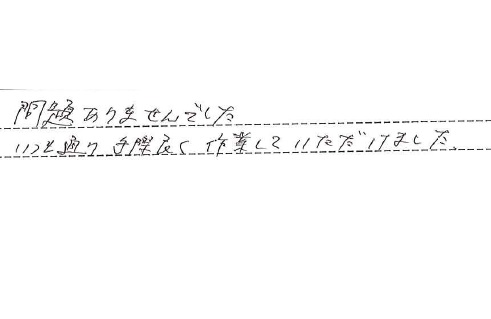 問題ありませんでした
いつも通り手際良く作業していただけました。